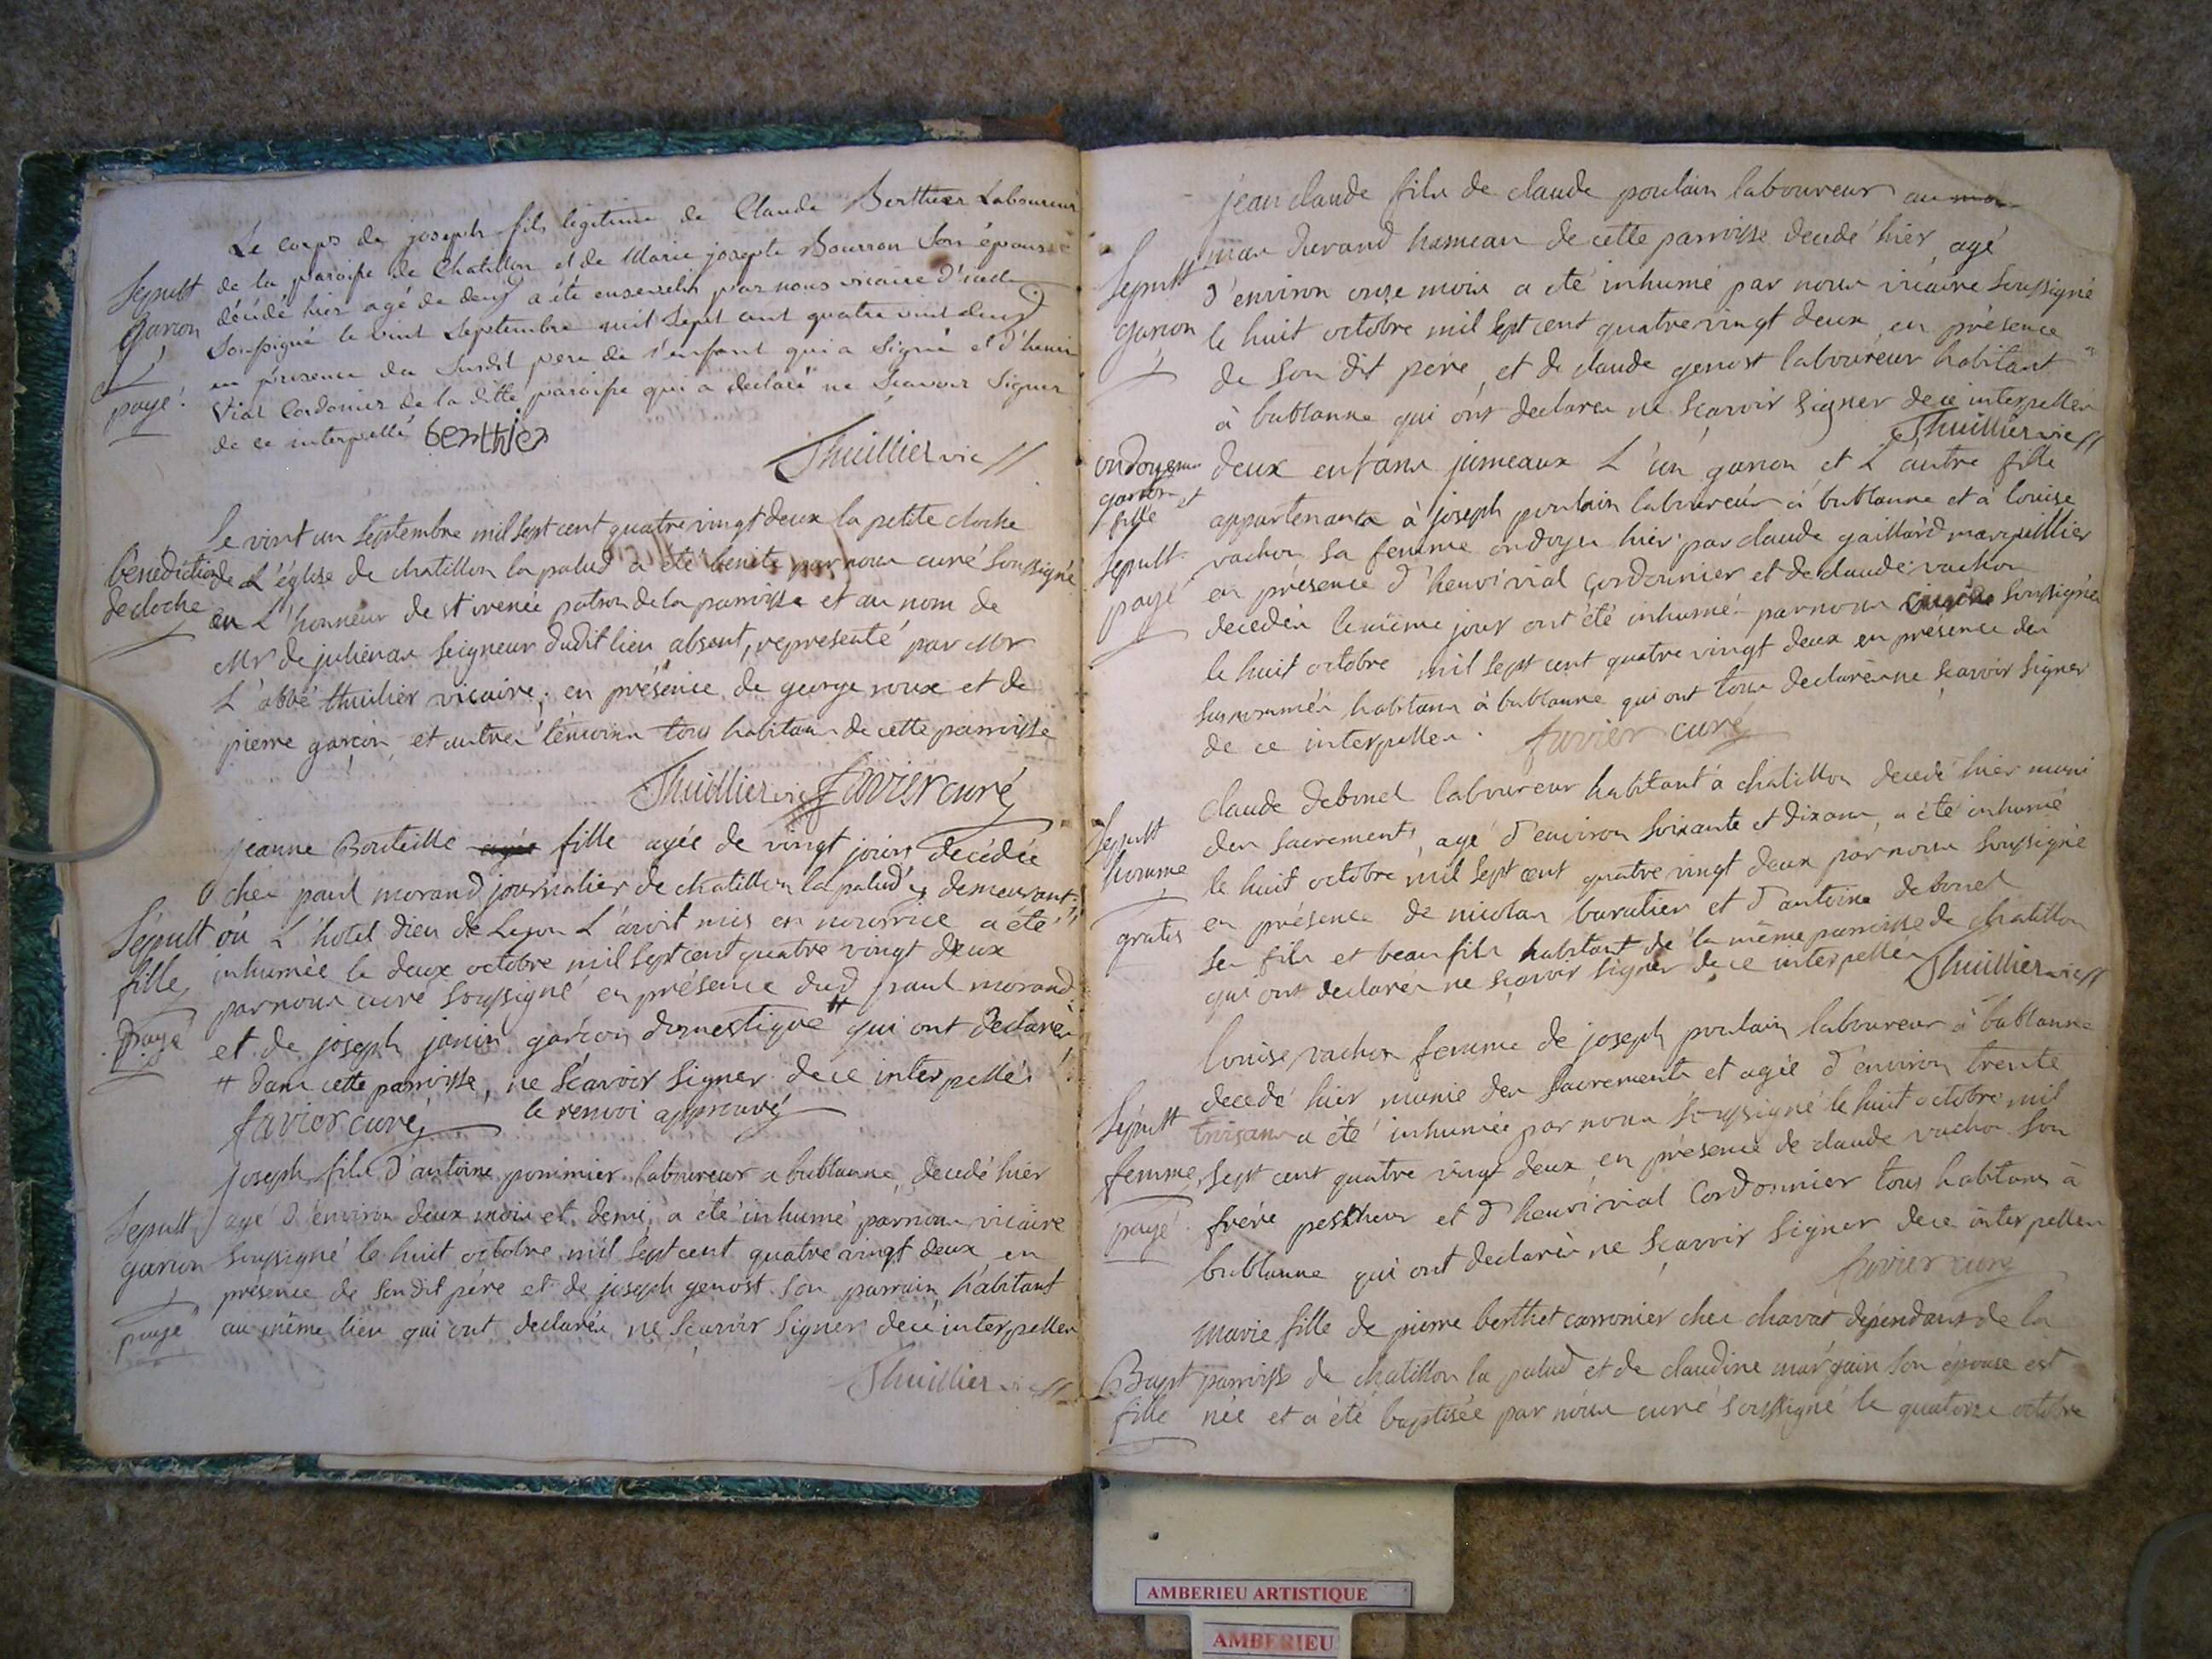 Le corps de joseph fils legitime de Claude Berthier Laboureur
de la paroisse de Chatillon et de Marie josephe Bourron son épouse
Sepult
garcon
payé
décédé hier agé de deux a été enseveli par nous vicaire d'icelle
soussigné le vint Septembre mil sept cent quatre vint deux
en présence du susdit pere de l'enfant qui a signé et d'henri
Vial Cordonier de la ditte paroisse qui a declaré ne scavoir signer
de ce interpellé berthier
Thuillier vic
le vint un septembre mil sept cent quatre vingt deux la petite cloche
bénédiction
de cloche
de L'église de chatillon la palud a été benite par nous curé soussigné
en L'honneur de st irenée patron de la parroisse et au nom de
Mr de julienas seigneur dudit lieu absent, representé par Mr
L'abbé thuilier vicaire; en présence de george roux et de
pierre garçon et autres témoins tous habitans de cette parroisse
Thuillier vic favier curé
jeanne Bouteille agée fille agée de vingt jours decédée
chez paul morand journalier de chatillon la palud y demeurant
Sepult
fille
payé
où L'hotel dieu de Lyon L'avoit mis en nourrice a été
inhumée le deux octobre mil sept cent quatre vingt deux
par nous curé soussigné en présence dud paul morand
et de joseph janin garcon domestique # qui ont declarés
# dans cette parroisse, ne scavoir signer de ce interpellés
favier curé le renvoi approuvé
joseph fils d'antoine pommier laboureur a bublanne decedé hier
Sepult
garcon
payé
agé d'environ deux mois et demi, a été inhumé par nous vicaire
soussigné le huit octobre mil sept cent quatre vingt deux en
présence de son dit père et de joseph genost son parrain habitant
au même lieu qui ont declarés ne scavoir signer de ce interpellés
Thuillier vic
jean claude fils de claude poulain laboureur au
mas durand hameau de cette parroisse decedé hier agé
Sepult
garcon
d'environ onze mois a été inhumé par nous vicaire soussigné
le huit octobre mil sept cent quatre vingt deux en présence
de son dit père, et de claude genost laboureur habitant
à bublanne qui ont declarés ne sçavoir signer de ce interpellés
Thuillier vic
garcon et
fille
Sepult
payé
deux enfans jumeaux L'un garcon et L'autre fille
appartenants à joseph poulain laboureur à bublanne et à louise
vachon sa femme ondoyés hier par claude gaillard
en présence d'henri vial cordonnier et de claude vachon
decedés le même jour ont été inhumés par nous soussigné
le huit octobre mil sept cent quatre vingt deux en présence des
susnommés habitans à bublanne qui ont tous declarés ne scavoir signer
de ce interpellés. favier curé
claude debonel laboureur habitant à chatillon decedé hier muni
Sepult
homme
gratis
des sacrements, agé d'environ soixante et dix ans, a été inhumé
le huit octobre mil sept cent quatre vingt deux par nous soussigné
en présence de nicolas baratier et d'antoine debonel
ses fils et beau fils habitant de la même parroisse de chatillon
qui ont declarés ne scavoir signer de ce interpellés Thuillier vic
louise vachon femme de joseph poulain laboureur à bublanne
decedé hier munie des sacrements et agée d'environ trente
Sepult
femme
payé
trois ans a été inhumée par nous soussigné le huit octobre mil
sept cent quatre vingt deux en présence de claude vachon son
frère pescheur et d'henri vial Cordonnier tous habitans à
bublanne qui ont declarés ne sçavoir signer de ce interpellés
favier curé
marie fille de pierre berthet carronier chez chavat dépendant de la
Bapt
fille
parroisse de chatillon la palud et de claudine margain son épouse est
née et a été baptisée par nous curé soussigné le quatorze octobre
AMBERIEU ARTISTIQUE
AMBERIEU